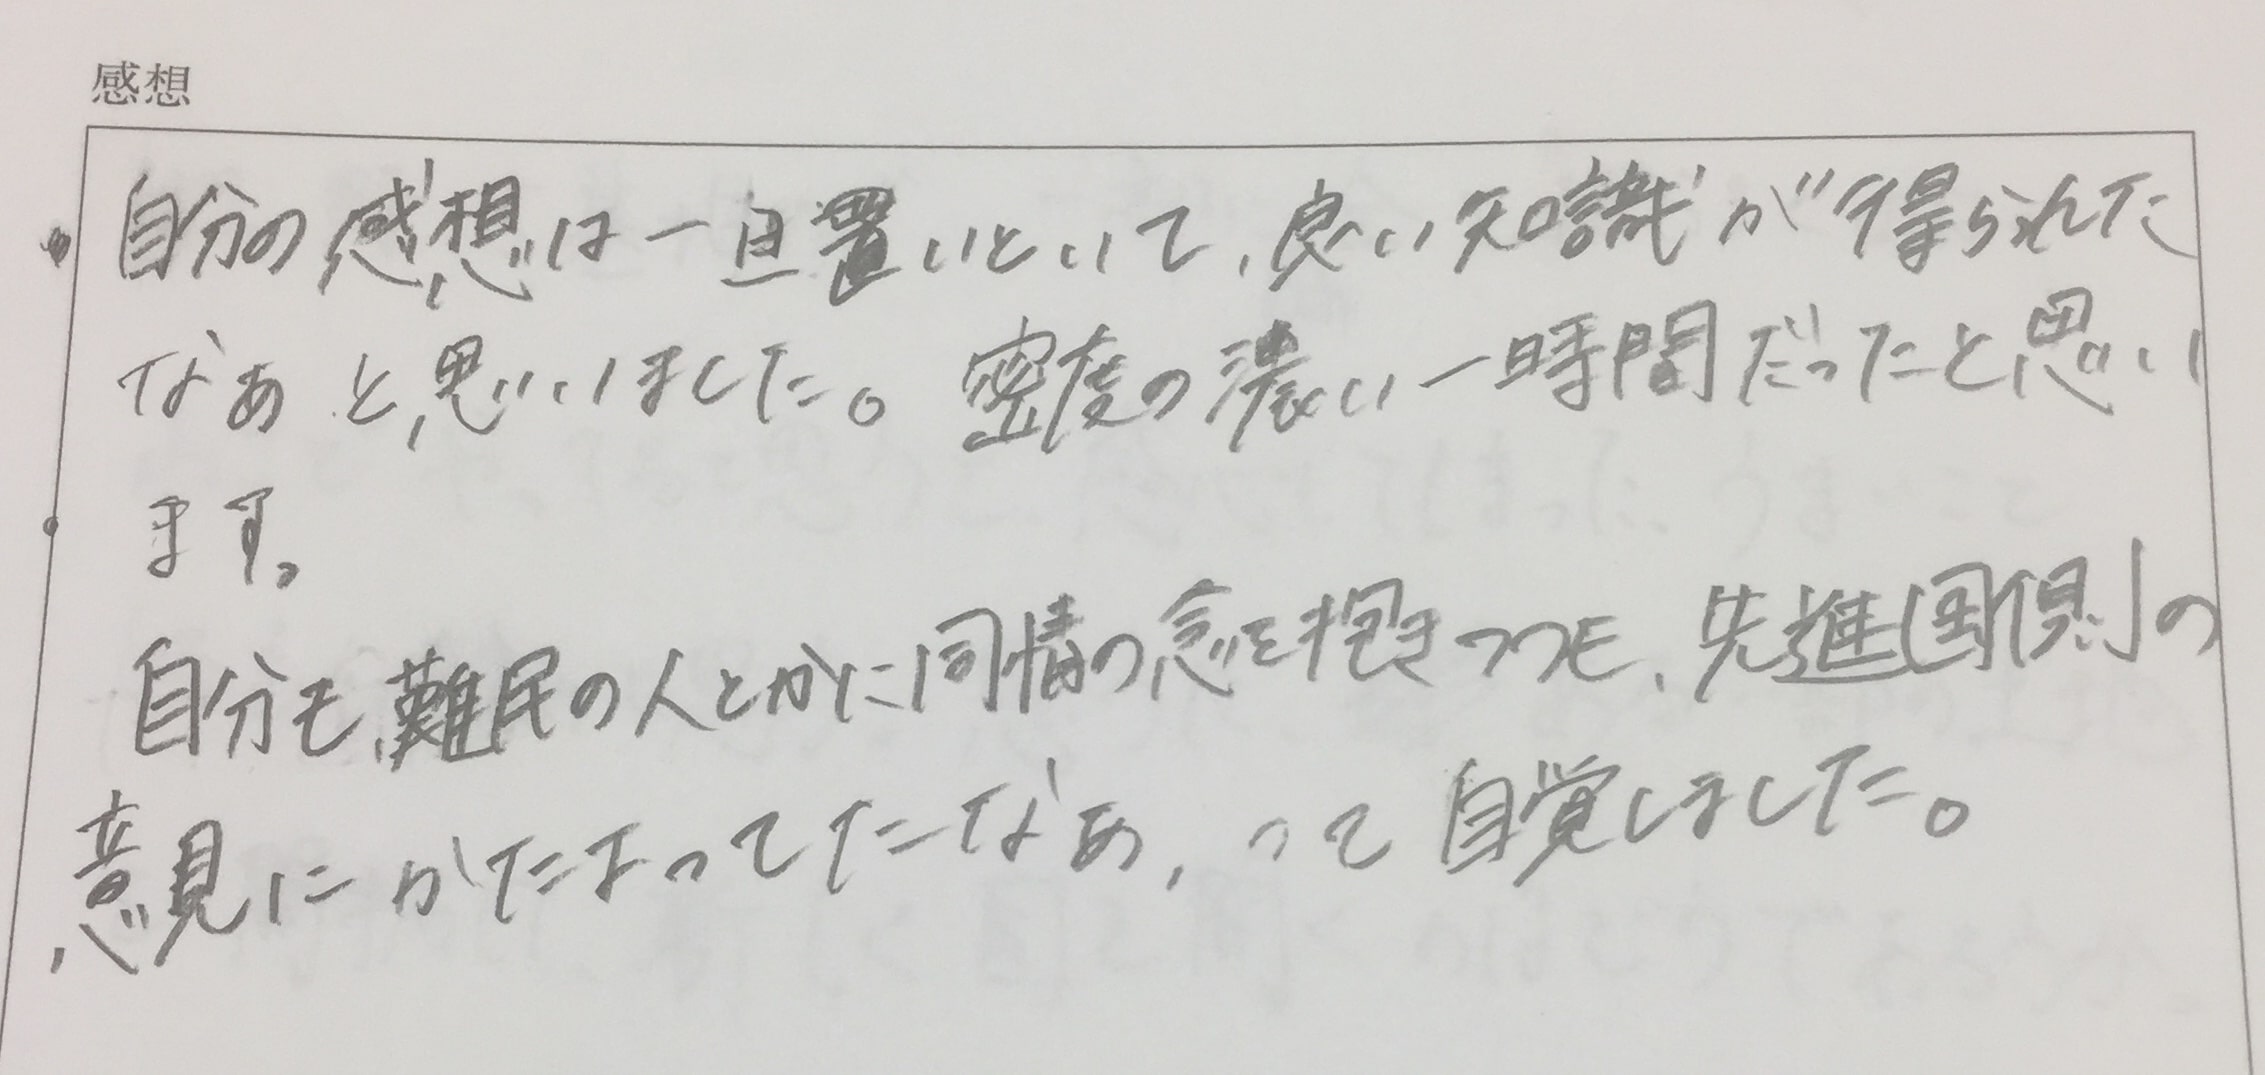 感想
自分の感想は一旦置いといて、良い知識が得られた
なぁと思いました。密度の濃い一時間だったと思い
ます。
自分も、難民の人とかに同情の念を抱きつつも、先進国側の
意見にかたまってたなぁ、って自覚しました。